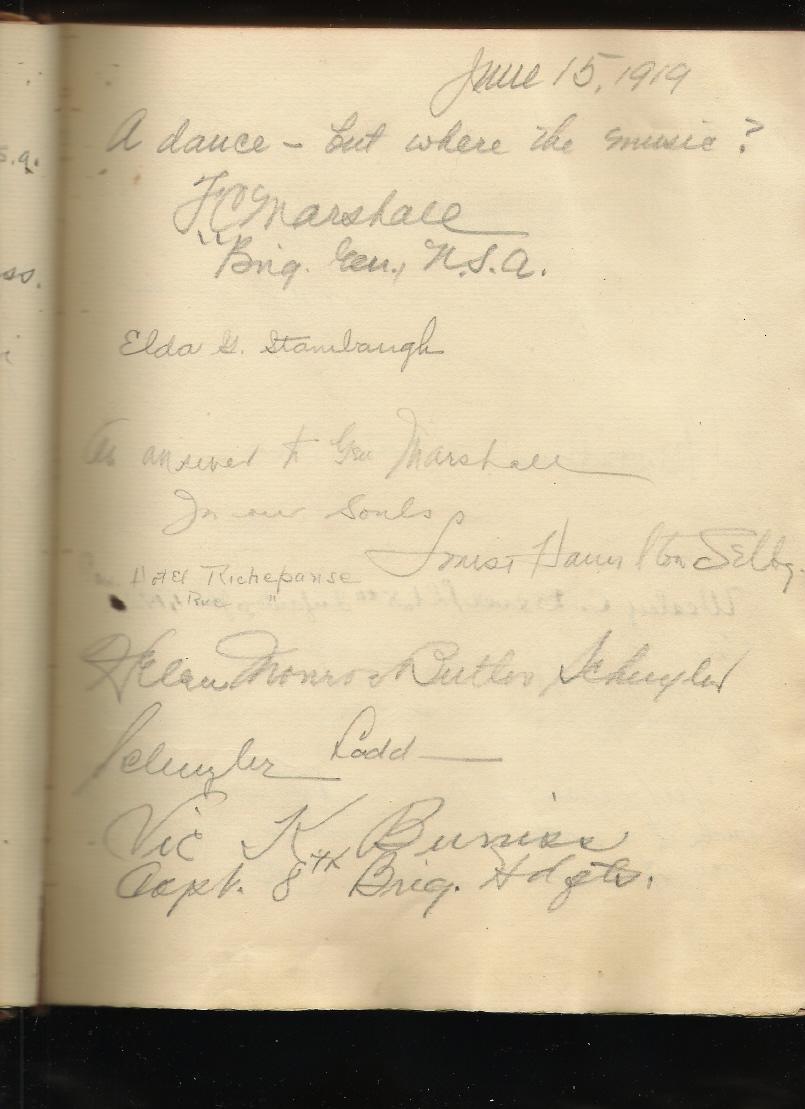 June 15, 1919
A dance – but where the music?
F C Marshall
Brig. Gen., U.S.A.
Elda G. Stambaugh
An answer to Gen Marshall
In our Souls,
Hamilton Selby.
Hotel Richepanse
Rue "
Helen Monroe Butler Schuyler
Schuyler Ladd
Vic K Burriss
Capt. 8th Brig. Hdqts.